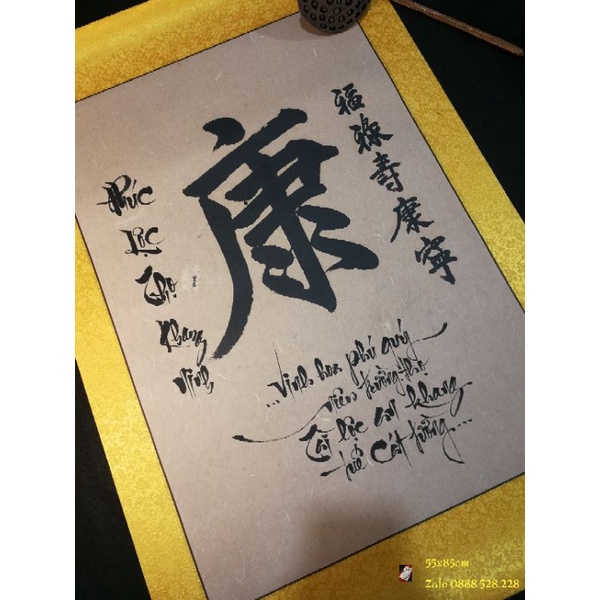 康
福祿壽康寧
Phúc
Lộc
Thọ
Khang
Ninh
...Vinh hoa phú quý
viên trường thọ
Tài lộc an khang
tuế Cát tường....
55x85cm
Zalo 0888.528.228